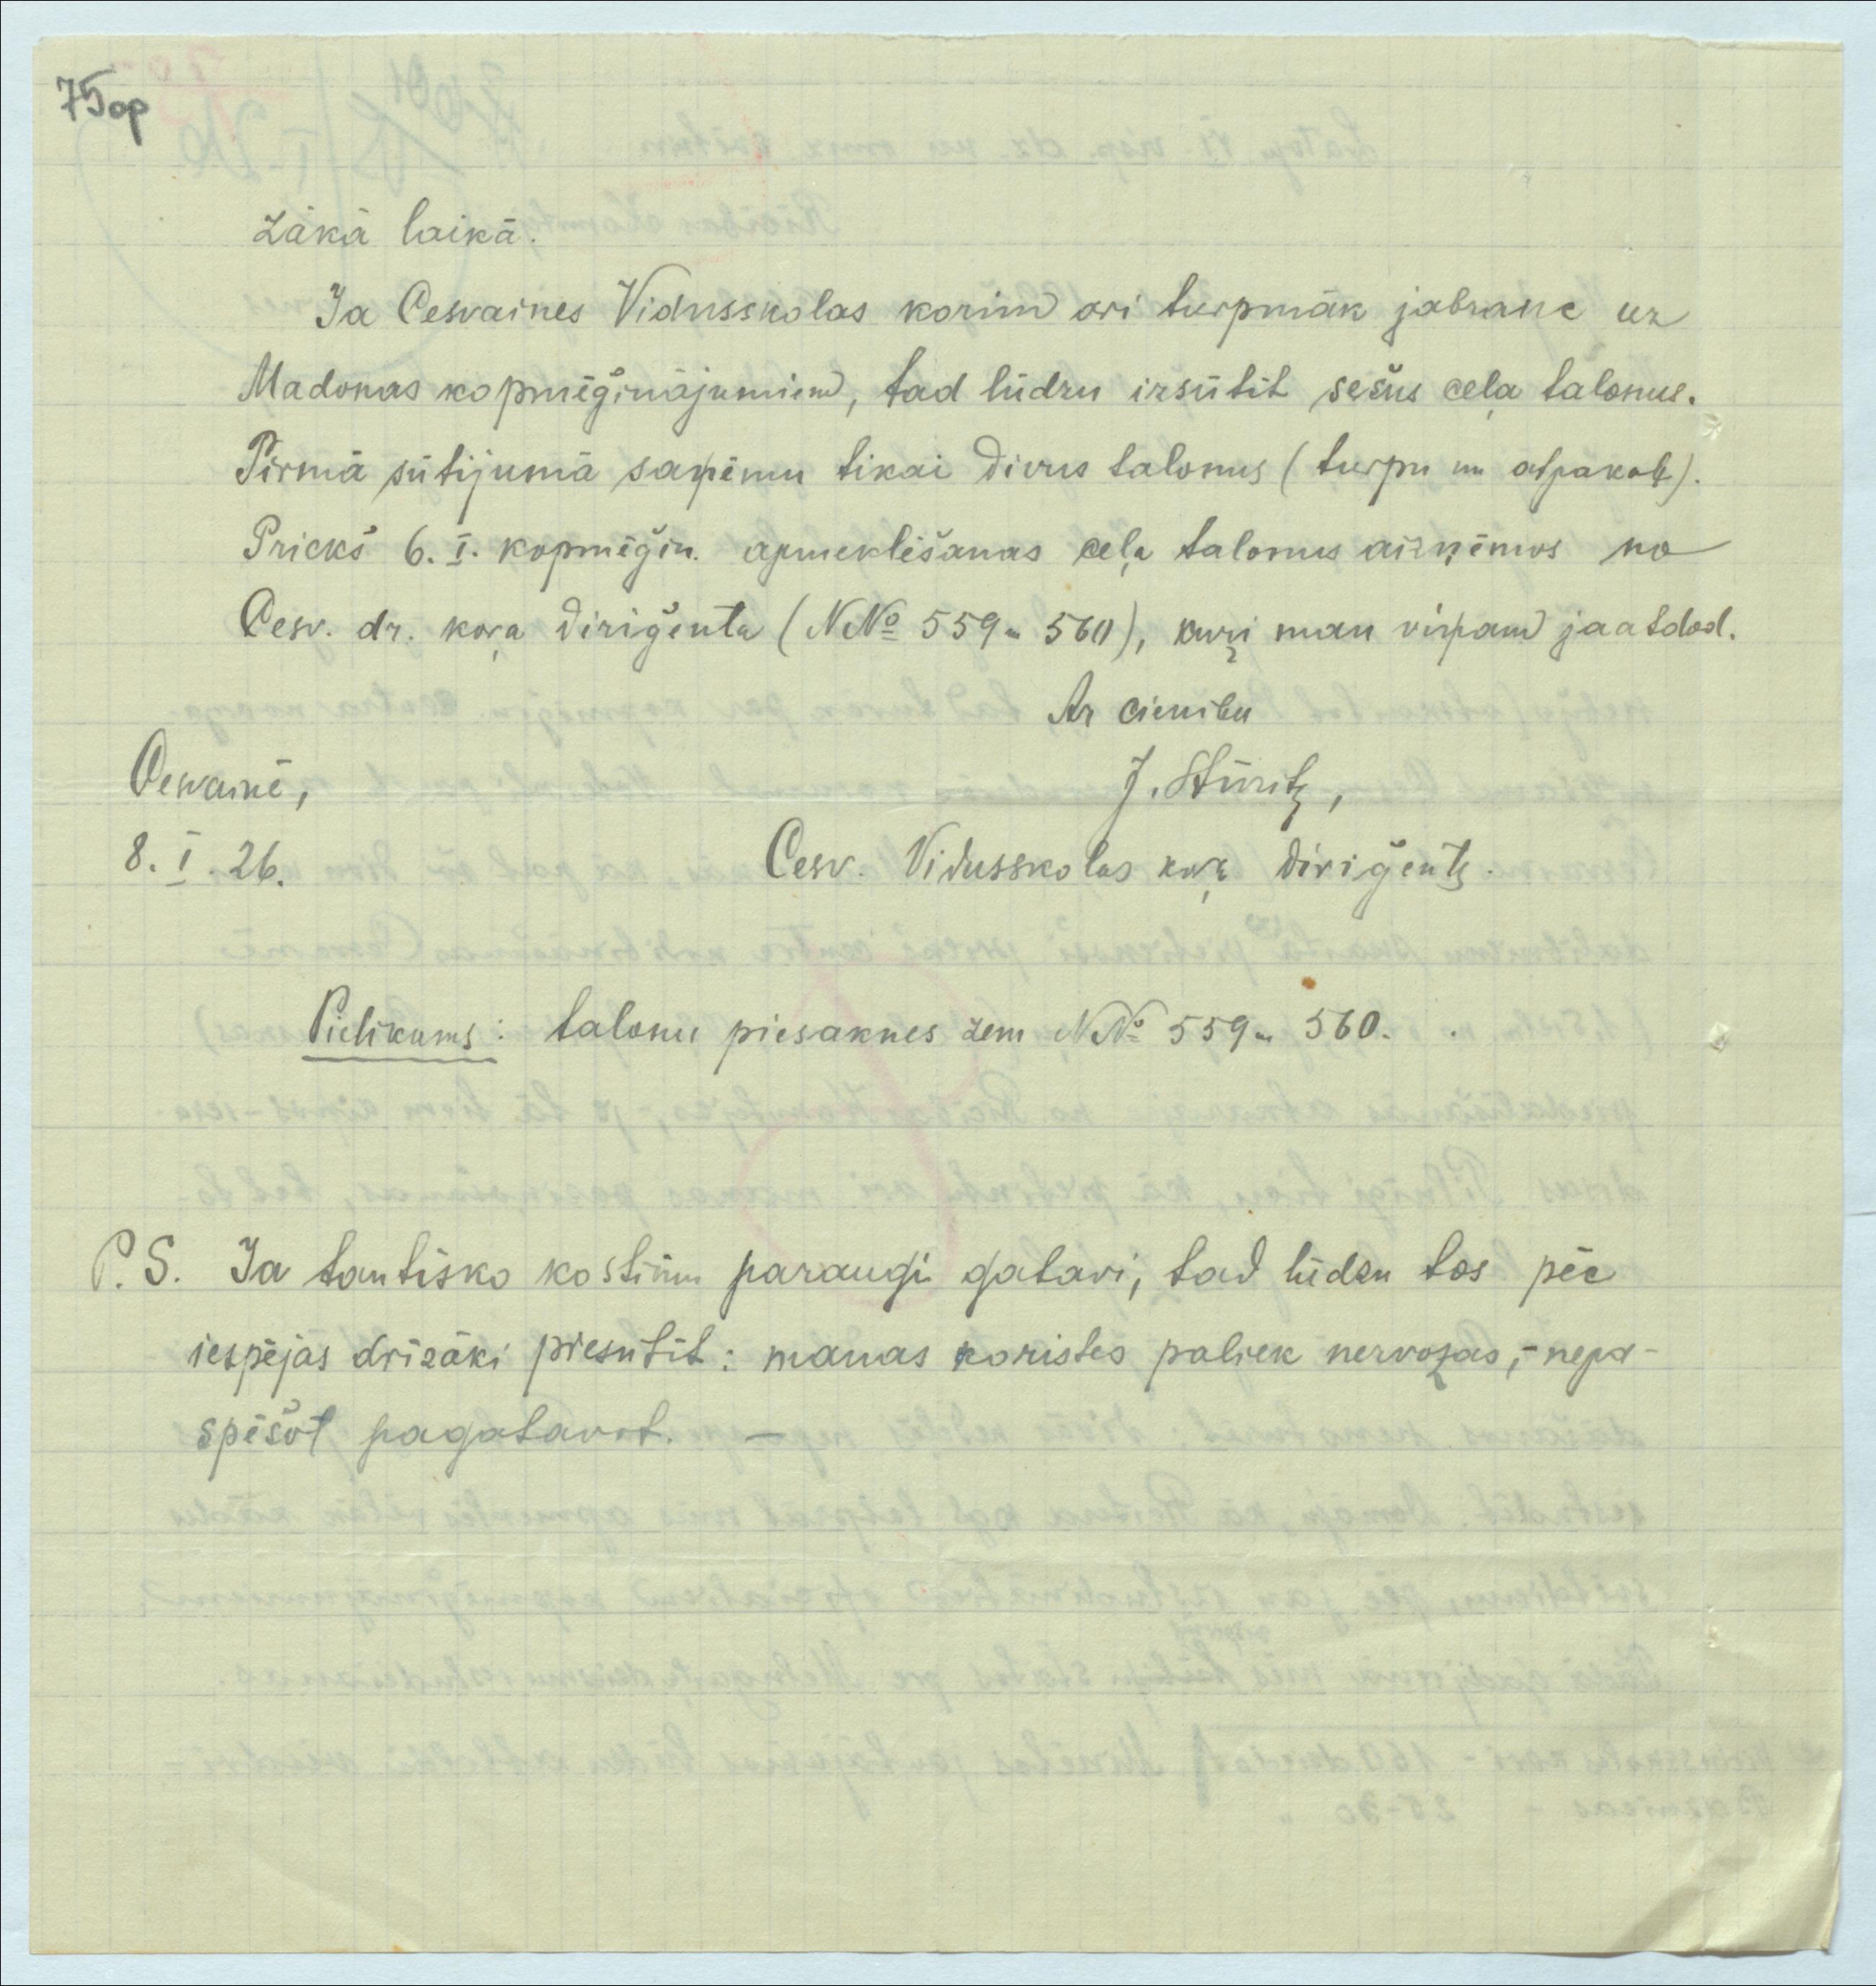 75op
zākā laikā.
Ja Cesvaines Vidusskolas korim ari turpmāk jabrauc uz
Madonas kopmēģinājumiem, tad lūdzu izsūtīt sešus ceļa talonus.
Pirmā sūtijumā saņēmu tikai divus talonus (turpu un atpakaļ).
Priekš 6. I. kopmēģin. apmeklēšanas ceļa talonus aizņēmos no
Cesv. dr. koŗa diriģenta (NNo 559 u 560), kuŗi man viņam jaatdod.
Ar cienibu
Cesvainē,
J. Stūrītz,
8. I. 26.
Cesv. Vidusskolas koŗa diriģents.
Pielikums: talonu piesaknes zem NNo 559 u 560.
P.S. Ja tautisko kostīmu paraugi gatavi, tad lūdzu tos pēc
iespējas drīzāki piesūtīt: manas koristes paliek nervozas, - nepa-
spēšot pagatavot. —